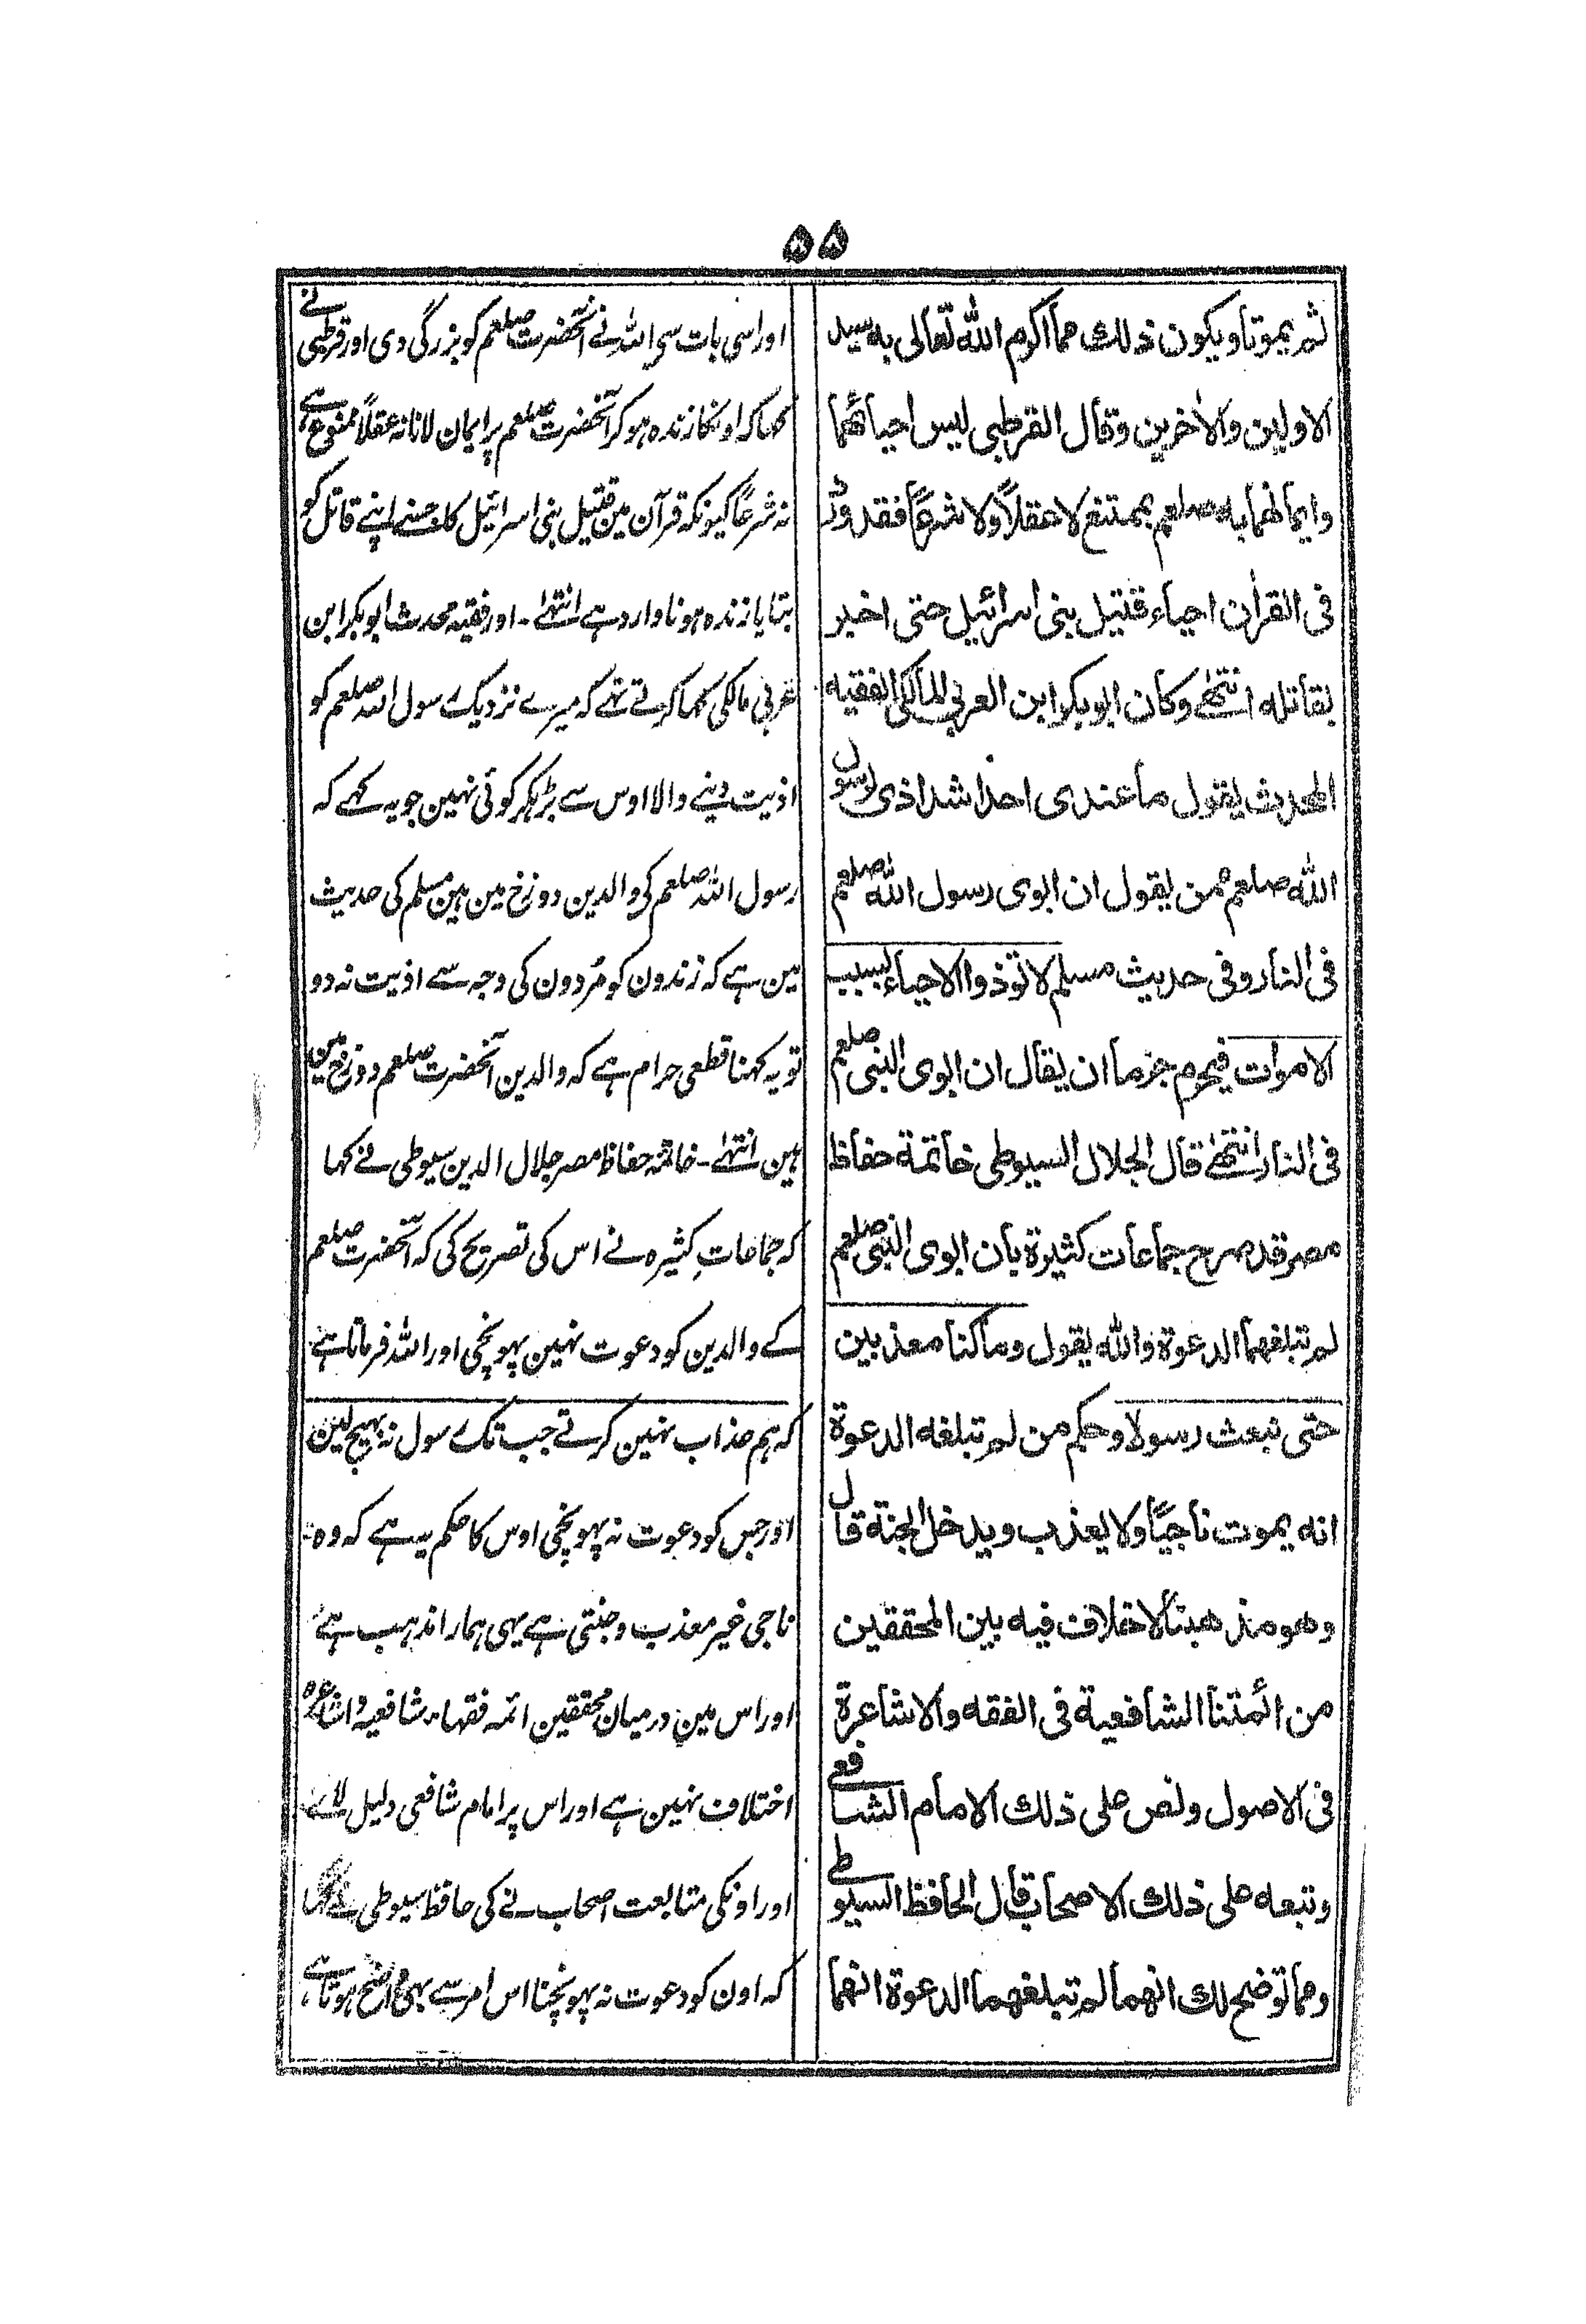 ۵۵
ثم يموتا ويكون ذلك مما اكرم الله تعالى به سيد
الاولين والاخرين وقال القرطبى ليس احيائهما
وايمانهما به صلعم بممتنع لا عقلاً ولا شرعاً فقد ورد
فى القران احياء قتيل بنى اسرائيل حتى اخبر
بقاتله انتهى وكان ابوبكر ابن العربي المالكى الفقيه
المحدث يقول ما عندى احد اشد اذى لرسول
الله صلعم ممن يقول ان ابوى رسول الله صلعم
فى النار وفى حديث مسلم لا توذوا الاحياء بسبب
الاموات فيحرم جزما ان يقال ان ابوى النبى صلعم
فى النار انتهى قال الجلال السيوطى خاتمة حفاظ
مصر قد صرح جماعات كثيرة بان ابوى النبى صلعم
لم تبلغهما الدعوة والله يقول وماكنا معذبين
حتى نبعث رسولا وحكم من لم تبلغه الدعوة
انه يموت ناجيًا ولا يعذب ويدخل الجنة قال
وهو مذهبنا لا خلاف فيه بين المحققين
من ائمتنا الشافعية فى الفقه والاشاعرة
فى الاصول ونص على ذلك الامام الشافعى
وتبعه على ذلك الاصحاب قال الحافظ السيوطى
ومما توضح لك انهما لم تبلغهما الدعوة انهما
اور اسی بات سے اللہ نے آنحضرت صلعم کو بزرگی دی اور قرطبی نے
کہا کہ اونکا زندہ ہوکر آنحضرت صلعم پر ایمان لانا نہ عقلاً ممنوع ہے
نہ شرعًا کیونکہ قرآن مین قتیل بنی اسرائیل کا جسنے اپنے قاتل کو
بتایا زندہ ہونا وارد ہے انتہےٰ۔ اور فقیہ محدث ابوبکر ابن
عربی مالکی کہا کرتے تھے کہ میرے نزدیک رسول اللہ صلعم کو
اذیت دینے والا اوس سے بڑہکر کوئی نہین جو یہ کہے کہ
رسول اللہ صلعم کی والدین دوزخ مین ہین مسلم کی حدیث
مین ہے کہ زندون کو مُردون کی وجہ سے اذیت نہ دو
تو یہ کہنا قطعی حرام ہے کہ والدین آنحضرت صلعم دوزخ مین
ہین انتہےٰ۔ خاتمہ حفاظ مصر جلال الدین سیوطی نے کہا
کہ جماعاتِ کثیرہ نے اس کی تصریح کی کہ آنحضرت صلعم
کے والدین کو دعوت نہین پہونچی اور اللہ فرماتا ہے
کہ ہم عذاب نہین کرتے جب تک رسول نہ بہیج لین
اور جس کو دعوت نہ پہونچی اوس کا حکم یہ ہے کہ وہ
ناجی غیر معذب و جنتی ہے یہی ہمارا مذہب ہے
اور اس مین درمیان محققین ائمہ فقہاء شافعیہ و اشاعرہ
اختلاف نہین ہے اور اس پر امام شافعی دلیل لائے
اور اونکی متابعت اصحاب نے کی حافظ سیوطی نے کہا
کہ اون کو دعوت نہ پہونچنا اس امر سے بہی واضح ہوتا ہے